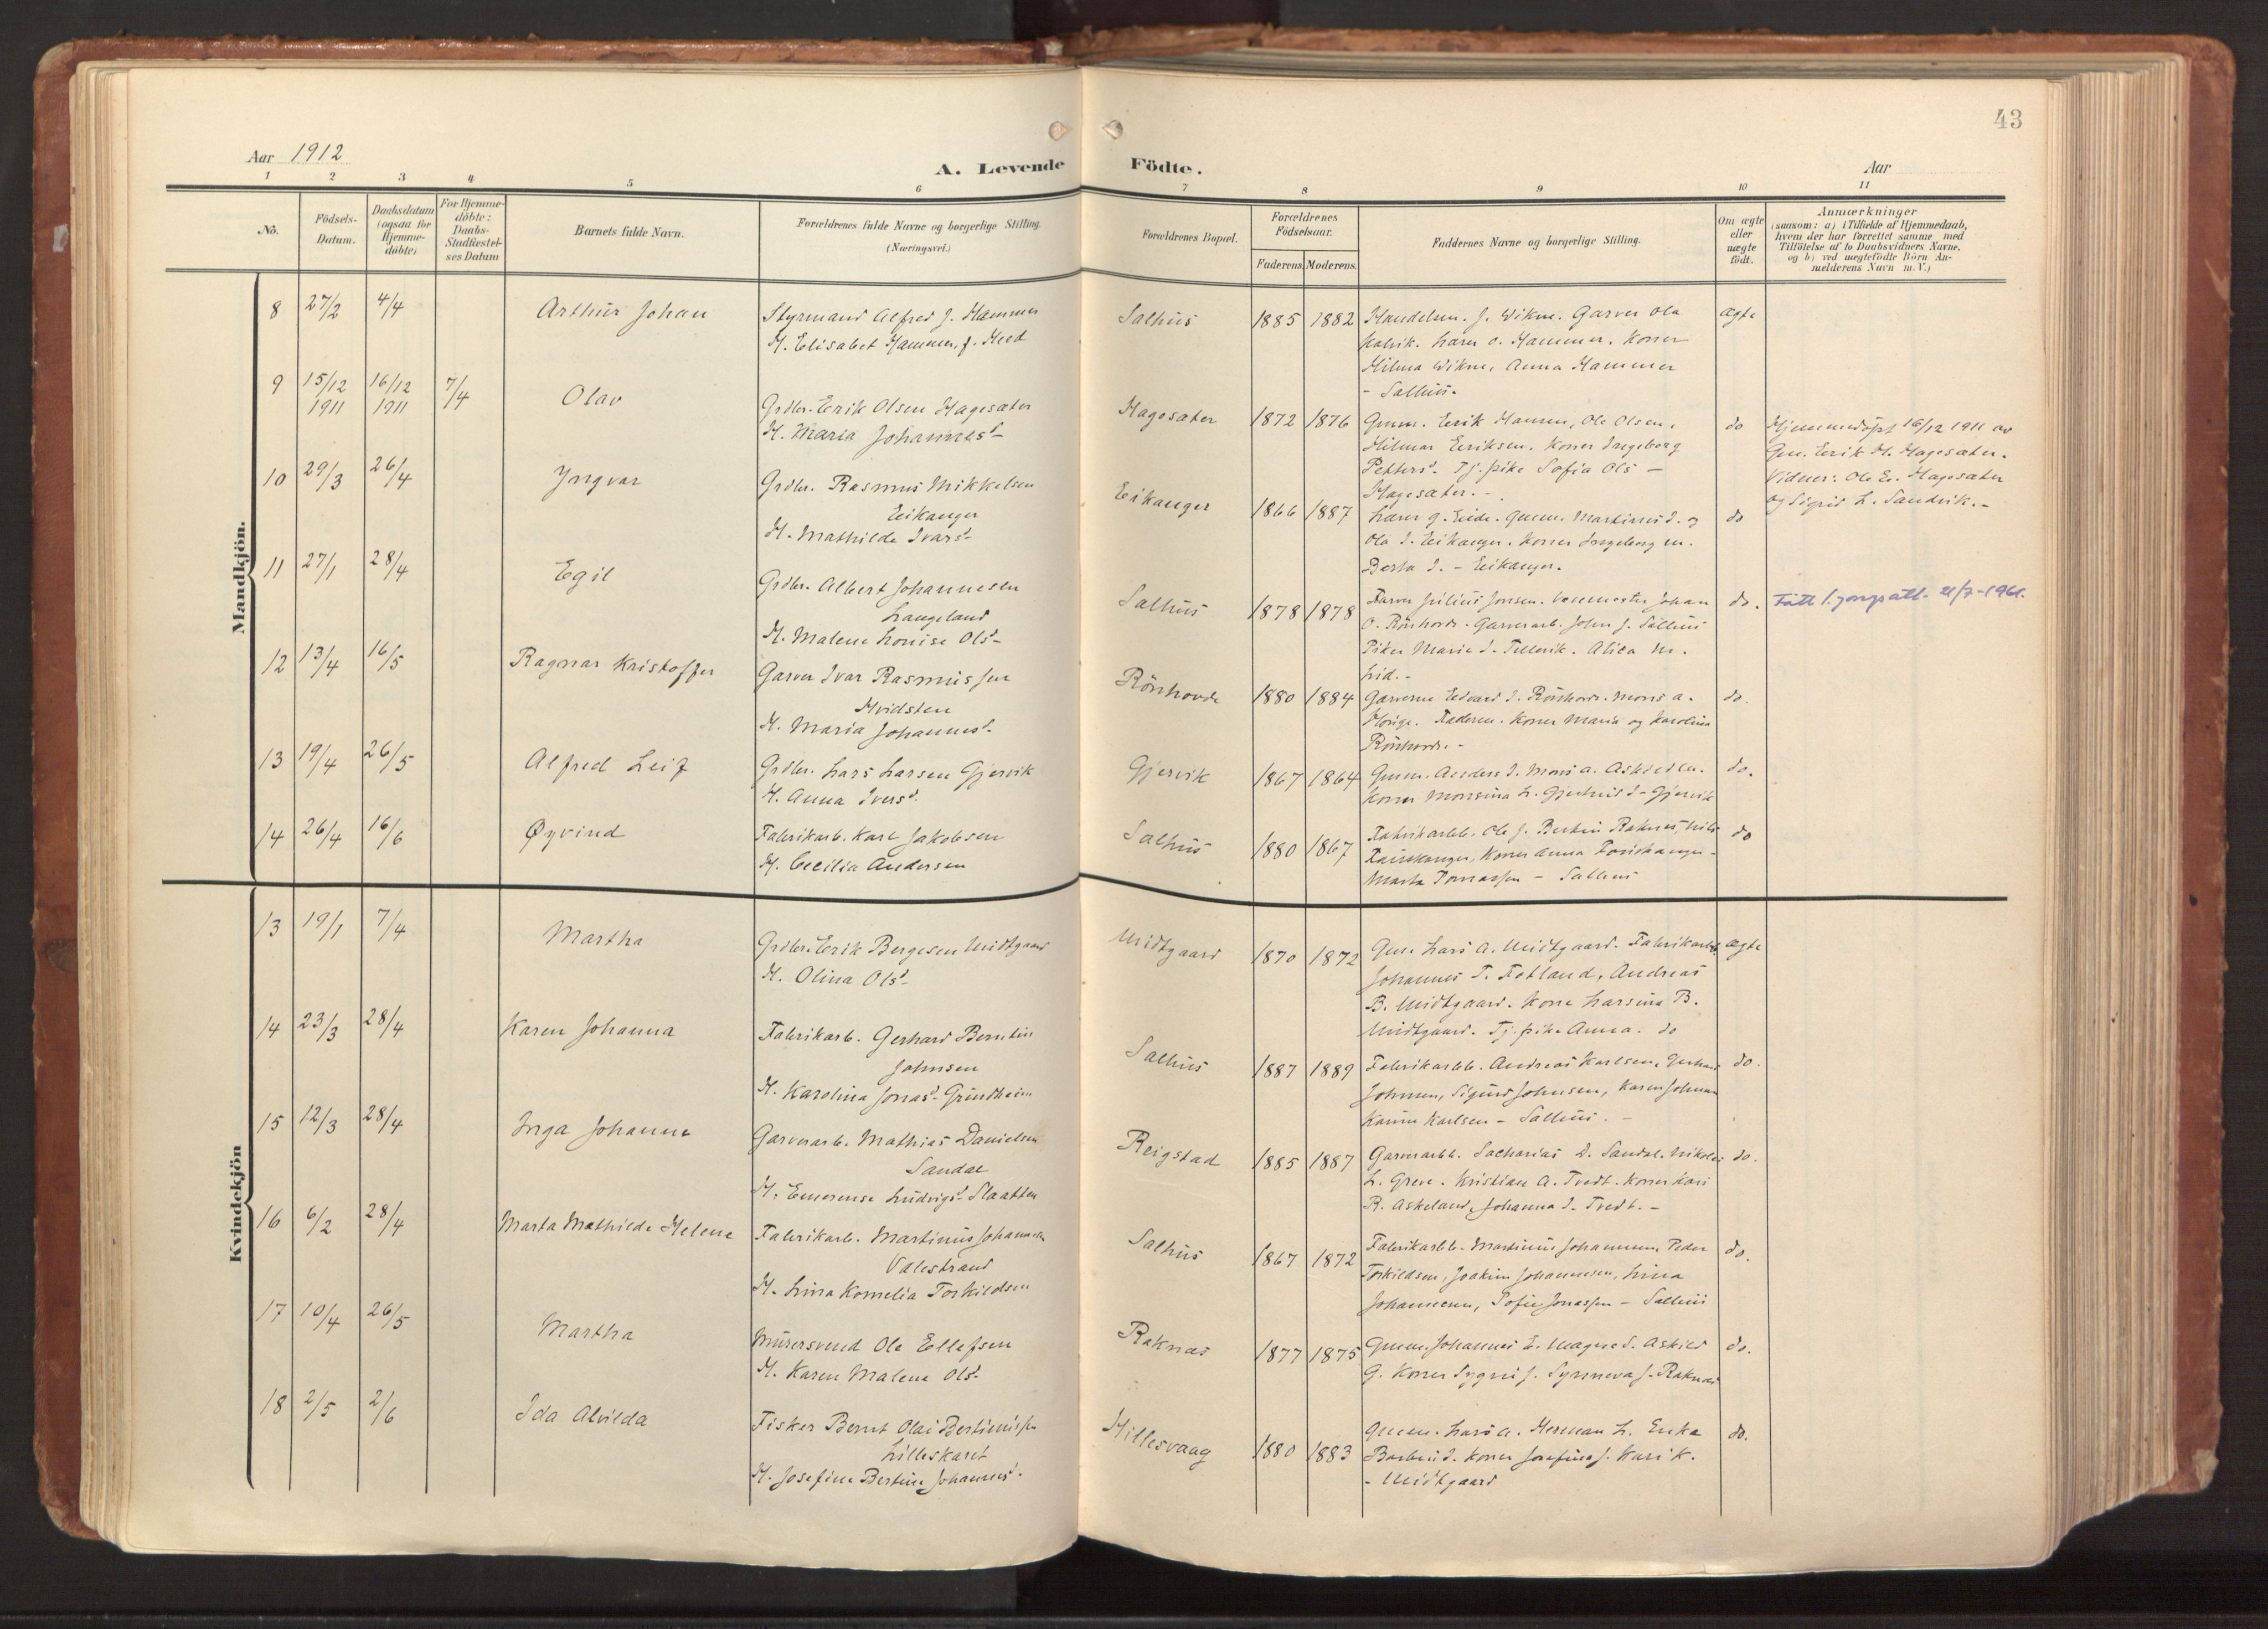 43
Aar 1912
A. Levende Födte.
Aar
1 2 3 4 5 6 7 8 9 10 11
No.
Födsels-
Datum.
Daabsdatum
(ogsaa for
Hjemme-
döbte)
For Hjemme-
döbte:
Daabs-
Stadfæstel-
ses Datum
Barnets fulde Navn.
Forældrenes fulde Navne og borgerlige Stilling.
(Næringsvei.)
Forældrenes Bopæl.
Forældrenes
Födselsaar.
Faderens. Moderens.
Faddernes Navne og borgerlige Stilling.
Om ægte
eller
uægte
födt.
Anmærkninger
(saasom: a) i Tilfælde af Hjemmedaab,
hvem der har forrettet samme med
Tilföielse af to Daabsvidners Navne.
og b) ved uægtefödte Börn An-
melderens Navn m. V.)
Mandkjön.
8 27/2 4/4 Arthur Johan
Styrmand Alfred J. Hammer
H. Elisabet Hammer, f.
Salhus 1885 1882
Handelsm. J. Wikne. Garver Ola
Lærer O. Hammer. Koner
Hilma Wikne, Anna Hammer
- Salhus.
ægte
9 15/12 1911 16/12 1911 7/4 Olav
Grdbr. Erik Olsen Hagesæter
H. Maria Johannesd.
Hagesæter 1872 1876
Gmm. Erik Hansen, Ole Olsen,
Hilmar Eriksen. Koner Ingeborg
Petters. Tj. pike Sofia Ols -
Hagesæter. -
do
Hjemmedöpt 16/12 1911 av
Gm. Erik H. Hagesæter.
Vidner: Ole E. Hagesæter
og Sigrid L. Sandvik. -
10 29/3 26/4 Yngvar
Grdbr. Rasmus Mikkelsen
Eikanger
H. Mathilde Ivarsd.
Eikanger 1866 1887
Lærer G. Eide. Gmm. Martinus I. og
Ola I. Eikanger. Koner Ingeborg M.
Berta I. - Eikanger.
do
11 27/1 28/4 Egil
Grdbr. Albert Johannesen
Langeland
H. Malene Lovise Olsd.
Salhus 1878 1878
Farver Julius Jonsen. Johan
O. Rönhovde. Garverarb. John J. Salhus
Piker Marie I. Alida M.
Lid. -
do.
21/7-1961.
12 13/4 16/5 Ragnar Kristoffer
Garver Ivar Rasmussen
Hvidsten
H. Maria Johannesd.
Rönhovde 1880 1884
Garverne Edvard I. Rönhovde. Mons A.
Faderen. Koner Maria og Karolina
Rönhovde. -
do.
13 19/4 26/5 Alfred Leif
Grdbr. Lars Larsen Gjervik
H. Anna Iversd.
Gjervik 1867 1864
Gmm. Anders I. Mons A.
Koner Monsina L. Gjertrud I - Gjervik
do.
14 26/4 16/6 Øyvind
Fabrikarb. Karl Jakobsen
H. Cecilia Andersen
Salhus 1880 1867
Fabrikarbb. Ole J. Bertin Raknes, Nils
Koner Anna
Marta Tomassen - Salhus
do
Kvindekjön
13 19/1 7/4 Martha
Grdbr. Erik Bergesen Midtgaard
H. Olina Olsd.
Midtgaard 1870 1872
Gm. Lars A. Midtgaard. Fabrikarbb.
Johannes T. Fotland, Andreas
B. Midtgaard. Kone Larsina B.
Midtgaard. Tj. pike Anna. do
ægte
14 23/3 28/4 Karen Johanna
Fabrikarb. Gerhard Berntin
Johnsen
H. Karolina Jonasd. Grindheim
Salhus 1887 1889
Fabrikarbb. Andreas Karlsen, Gerhard
Johnsen, Sigurd Johnsen, Karen Johnsen
Karina Karlsen - Salhus. -
do.
15 12/3 28/4 Inga Johanne
Garverarb. Mathias Danielsen
Sandal
H. Emerense Ludvigsd. Slaatten
Reigstad 1885 1887
Garverarbb. Sacharias D. Sandal. Nikolai
L. Greve. Kristian A. Tvedt. Koner Kari
R. Askeland, Johanna I. Tvedt. -
do.
16 6/2 28/4 Marta Mathilde Helene
Fabrikarb. Martinus Johannesen
Valestrand
H. Lina Kornelia Torkildsen
Salhus 1867 1872
Fabrikarbb. Martinus Johannesen, Peder
Torkildsen, Joakim Johannesen, Lina
Johannesen, Sofie Jonassen - Salhus
do.
17 10/4 26/5 Martha
Murersvend Ole Ellefsen
H. Karen Malene Olsd.
Raknes 1877 1875
Gmm. Johannes E. Magne S. Askild
G. Koner Sygni J. Synneva J. Raknes
do.
18 2/5 2/6 Ida Alvilda
Fisker Bernt Olai Bertinussen
Lilleskaret
H. Josefine Bertine Johannesd.
Hillesvaag 1880 1883
Gmm. Lars A. Herman L. Enke
Barbru I. Koner Josefina J. Kari K.
- Midtgaard
do.